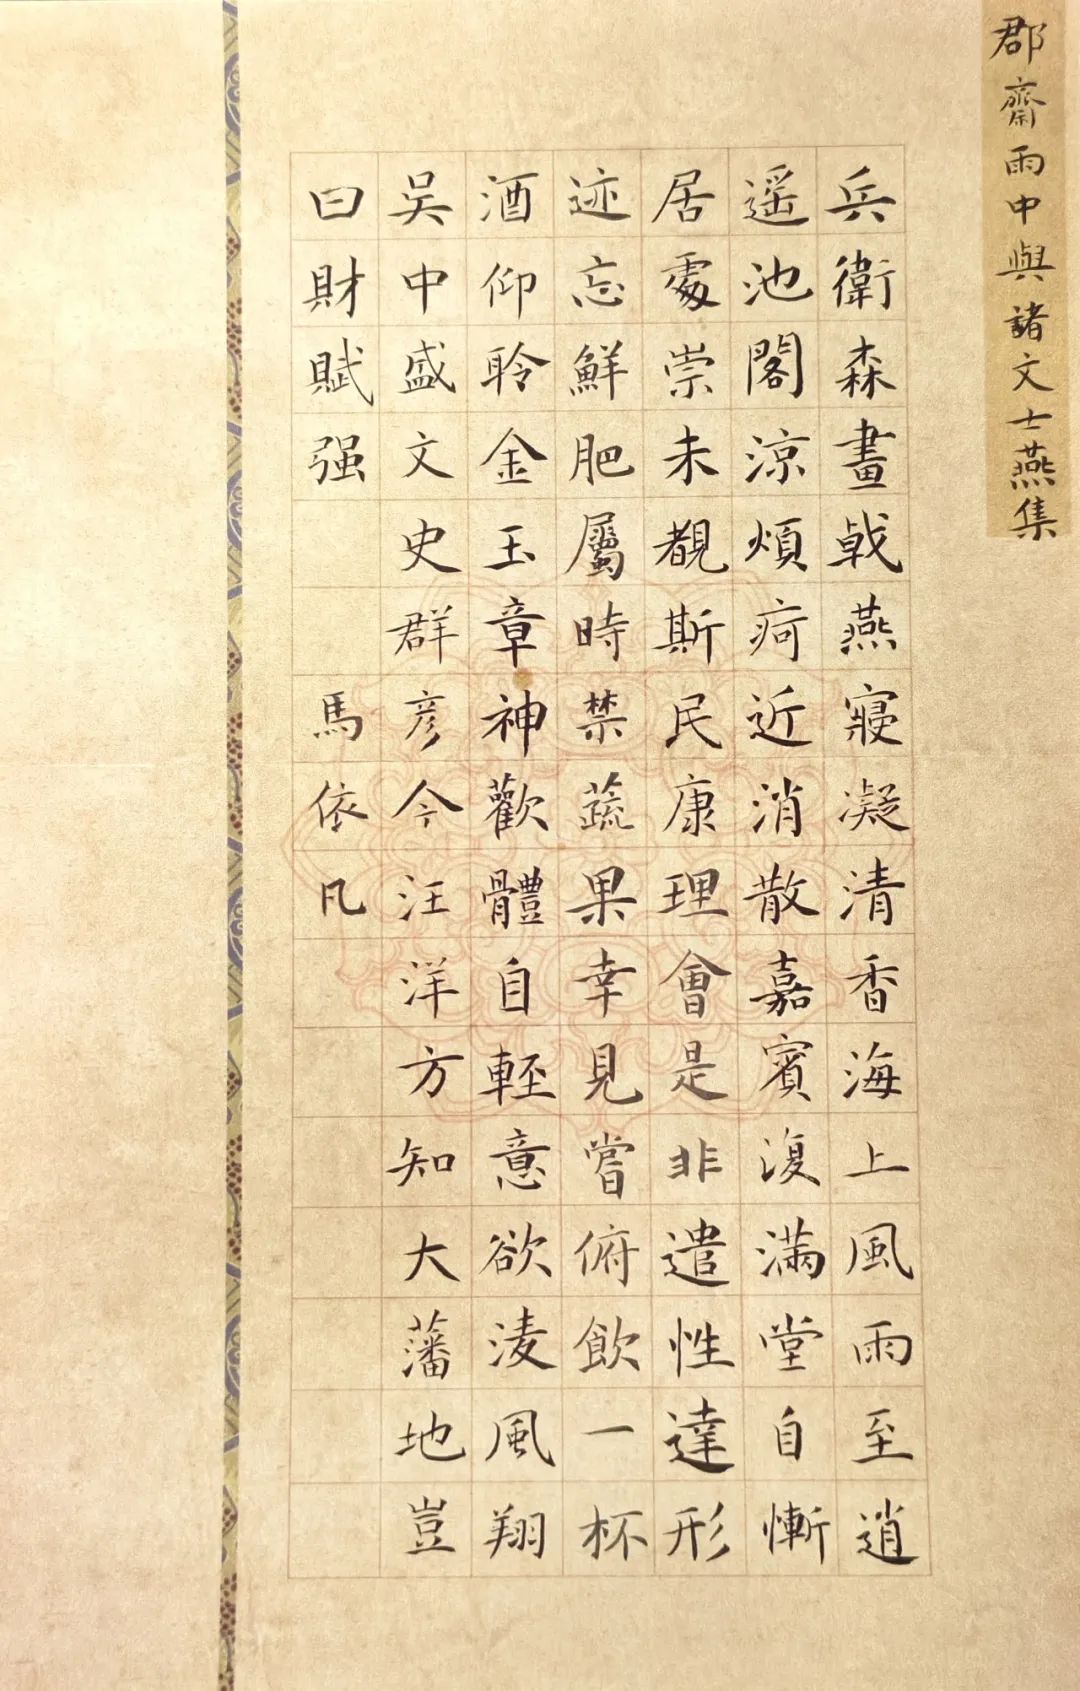 郡齋雨中與諸文士燕集
兵衛森畫戟燕寢凝清香海上風雨至逍
遥池閣涼煩疴近消散嘉賓復滿堂自慚
居處崇未覩斯民康理會是非遣性達形
迹忘鮮肥屬時禁蔬果幸見嘗俯飲一杯
酒仰聆金玉章神歡體自輕意欲淩風翔
吳中盛文史群彦今汪洋方知大藩地豈
曰財賦强
馬依凡